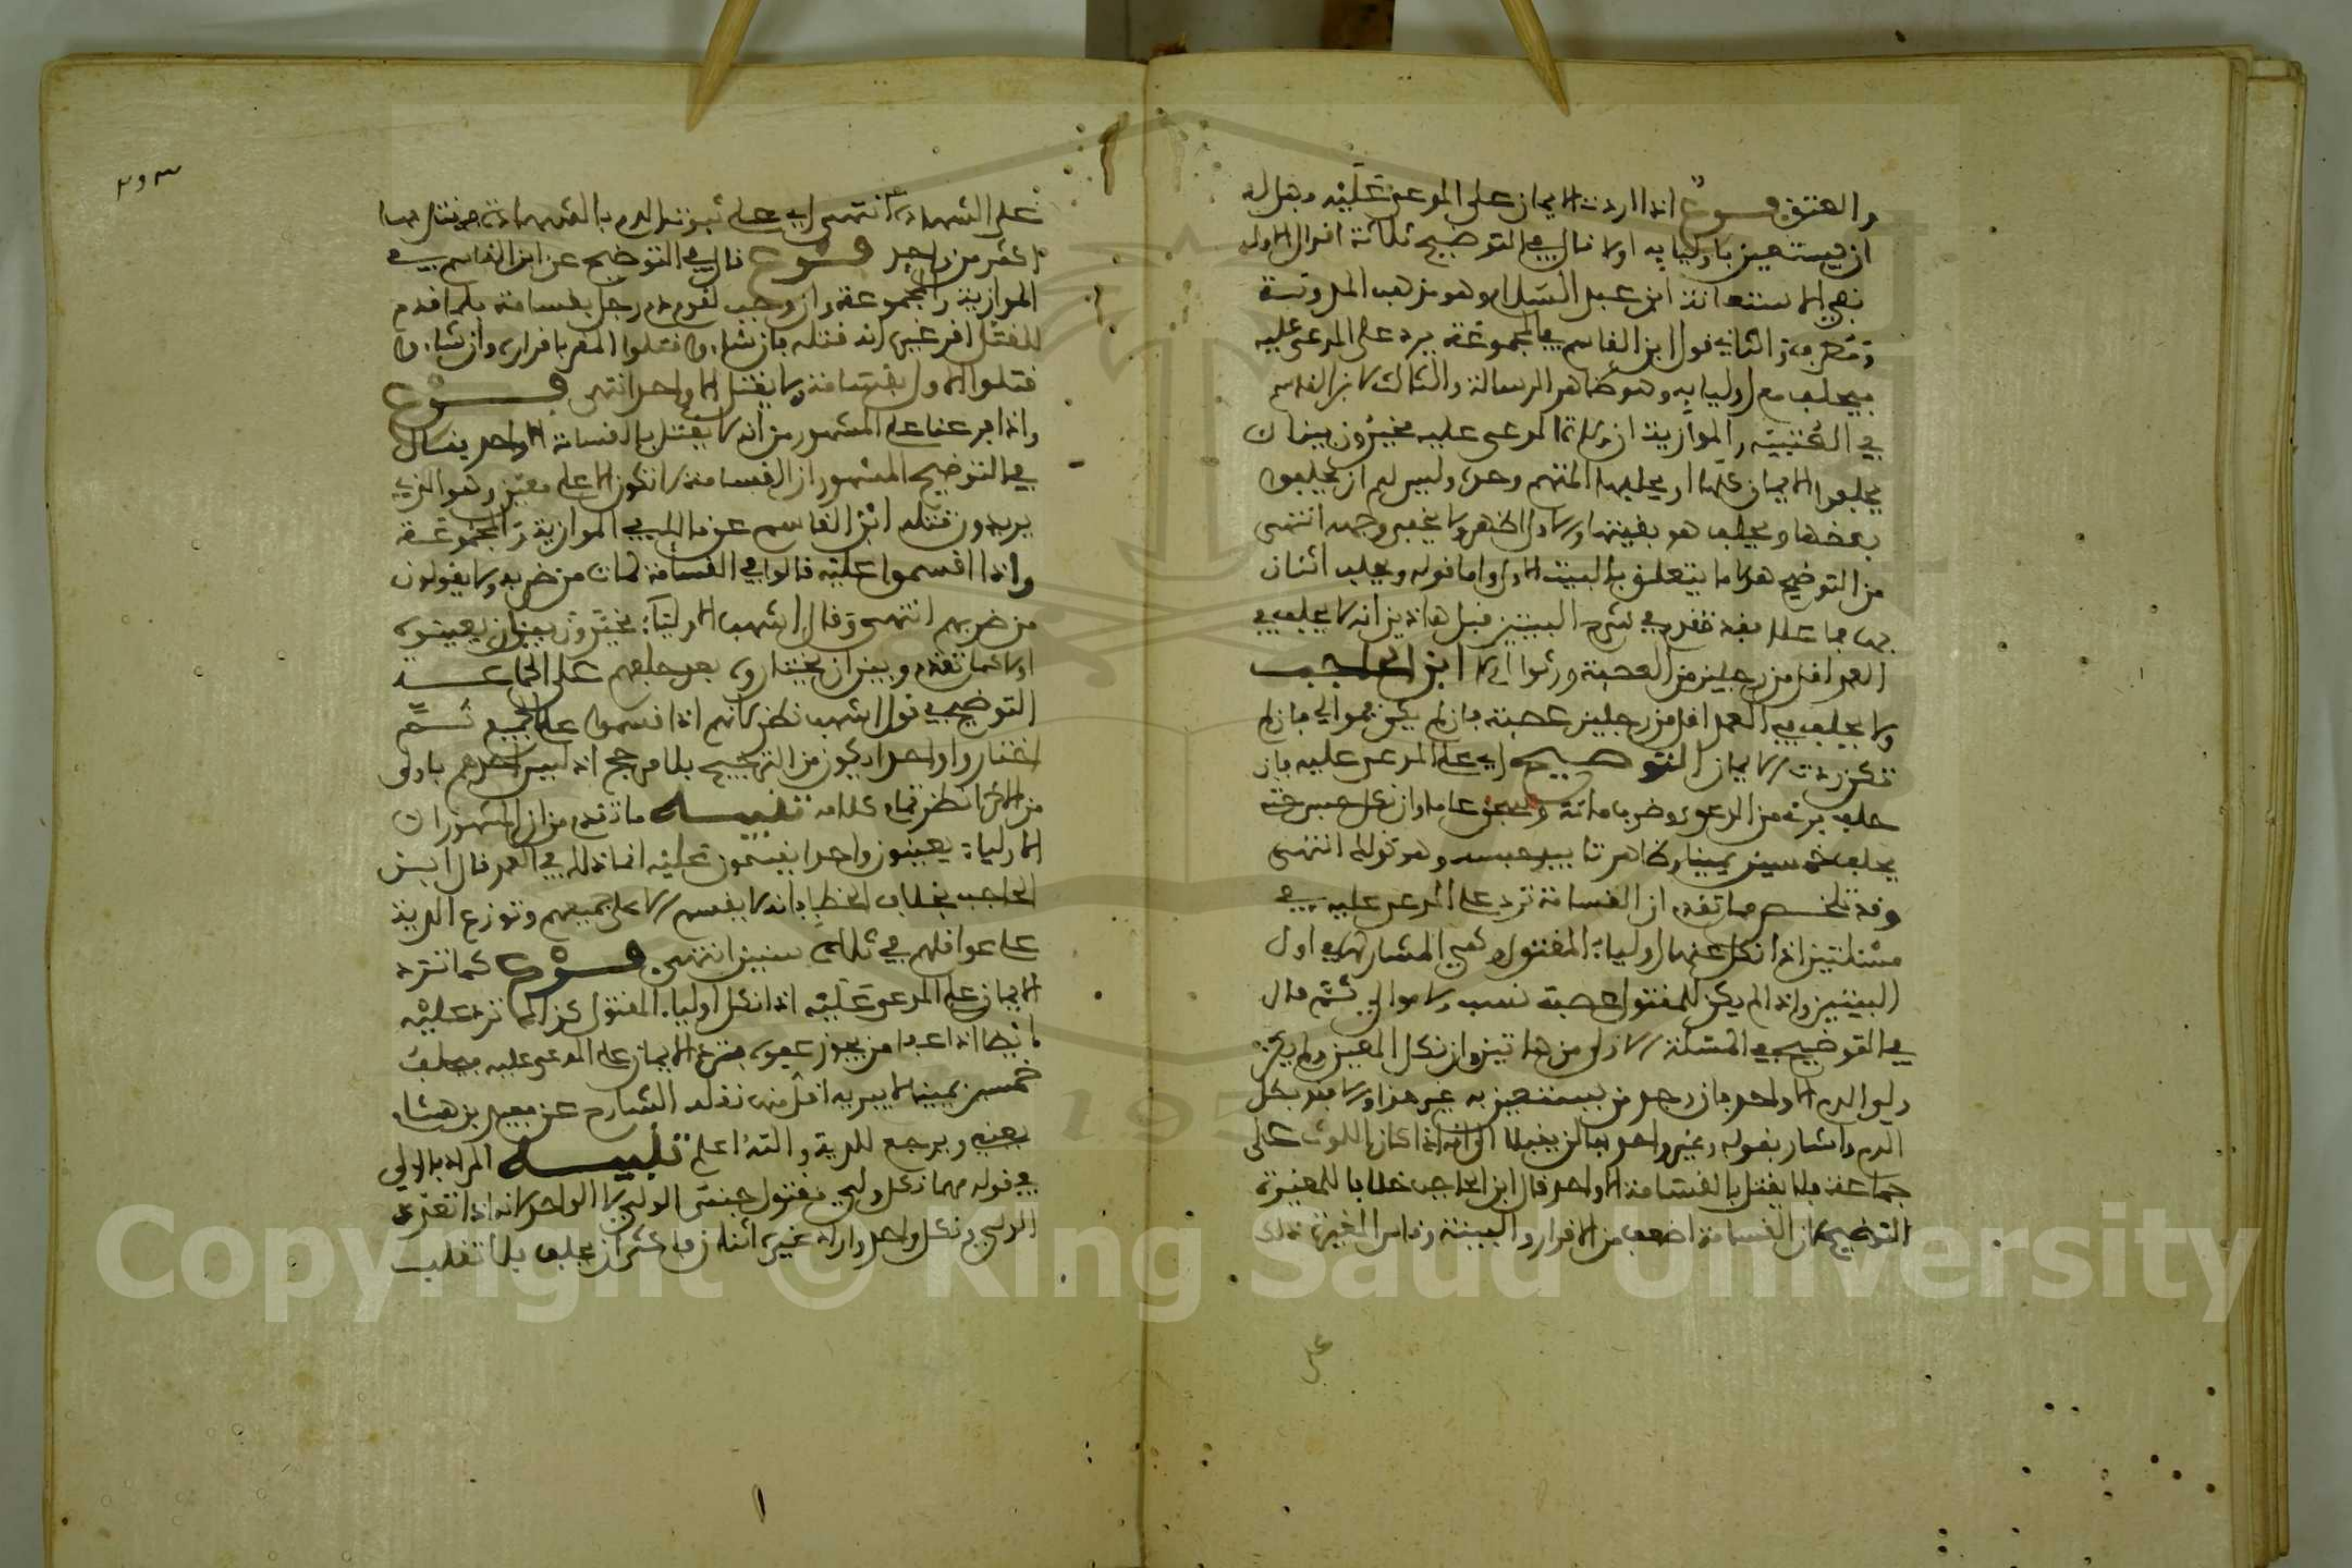 والعتق فرع اذا ردت الايمان على المدعى عليه وهل له
ان يستعين باوليايه او لا قال في التوضيح ثلاثة اقوال الاول
نفي الاستعانة ابن عبد السلام وهو مذهب المدونة
ومطرف والثاني قول ابن القاسم في المجموعة يرد على المدعى عليه
فيحلف مع اوليايه وهو ظاهر الرسالة والثالث لابن القاسم
في العتبية والموازية ان ولاة المدعى عليه مخيرون بين ان
يحلفوا الايمان كلها او يحلفها المتهم وحده وليس لهم ان يحلفوا
بعضها ويحلف هو بقيتها والاول اظهر ولا يخفى وجهه انتهى
من التوضيح هذا ما يتعلق بالبيت الاول واما قوله ويحلف اثنان
بها فما علا فقد تقدم في شرح البيتين قبل هاذين انه لا يحلف في
العمد اقل من رجلين من العصبة ورثوا ام لا ابن الحاجب
ولا يحلف في العمد اقل من رجلين عصبة فان لم يكن فموالي فان لم
تكن ردت الايمان التوضيح اي على المدعى عليه فان
حلف برئ من الدعوى وضرب مائة وسجن عاما وان نكل حبس حتى
يحلف خمسين يمينا وظاهره تابيد حبسه وهو قول انتهى
وقد تلخص مما تقدم ان القسامة ترد على المدعى عليه في
مسئلتين اذا نكل عنها اولياء المقتول وهي المشار لها في اول
البيتين واذا لم يكن للمقتول عصبة نسب ولا موالي ثم قال
في التوضيح في المسئلة الاولى من هاتين وان نكل المعين ولم يكن
ولي الدم الا واحد فان وجد من يستعين به غير هذا والا فقد بطل
الدم واشار بقوله وغير واحد بها لن يقتلا الى انه اذا كان اللوث على
جماعة فلا يقتل بالقسامة الا واحد قال ابن الحاجب خلافا للمغيرة
التوضيح لان القسامة اضعف من الاقرار والبينة وقاس المغيرة ذلك
على
٣٩٣
على الشهادة انتهى اي على ثبوت الدم بالشهادة فيقتل بها
اكثر من واحد فرع قال في التوضيح عن ابن القاسم في
الموازية والمجموعة وان وجب لقوم دم رجل بقسامة فلما قدم
للقتل اقر غيره انه قتله فان شاءوا قتلوا المقر باقراره وان شاءوا
قتلوا الاول بقسامة ولا يقتل الا واحد انتهى فرع
واذا فرعنا على المشهور من انه لا يقتل بالقسامة الا واحد فقال
في التوضيح المشهور ان القسامة لا تكون الا على معين وهو الذي
يريدون قتله ابن القاسم عن مالك في الموازية والمجموعة
واذا اقسموا عليه قالوا في القسامة لمات من ضربه ولا يقولون
من ضربهم انتهى وقال اشهب الاولياء مخيرون بين ان يعينوه
اولا كما تقدم وبين ان يختاروه بعد حلفهم على الجماعة
التوضيح في قول اشهب نظر لانهم اذا قسموا على الجميع ثم
اختاروا واحدا يكون من الترجيح بلا مرجح اذ ليس احدهم باولى
من الاخر انظر تمام كلامه تنبيه ما تقدم من ان المشهور ان
الاولياء يعينون واحدا يقسمون عليه انما ذلك في العمد قال ابن
الحاجب بخلاف الخطا فانه لا يقسم الا على جميعهم وتوزع الدية
على عواقلهم في ثلاث سنين انتهى فرع كما ترد
الايمان على المدعى عليه اذا نكل اولياء المقتول كذلك ترد عليه
ايضا اذا عفا من يجوز عفوه فترد الايمان على المدعى عليه فيحلف
خمسين يمينا لا يبريه اقل منها نقله الشارح عن مفيد بن هشام
بعينه ويرجع للدية والله اعلم تنبيه المراد بالولي
في قوله مهما نكل ولي مقتول جنس الولي لا الواحد لانه اذا تعدد
الولي ونكل واحد واراد غيره اثنان فاكثر ان يحلف فلا تقلب